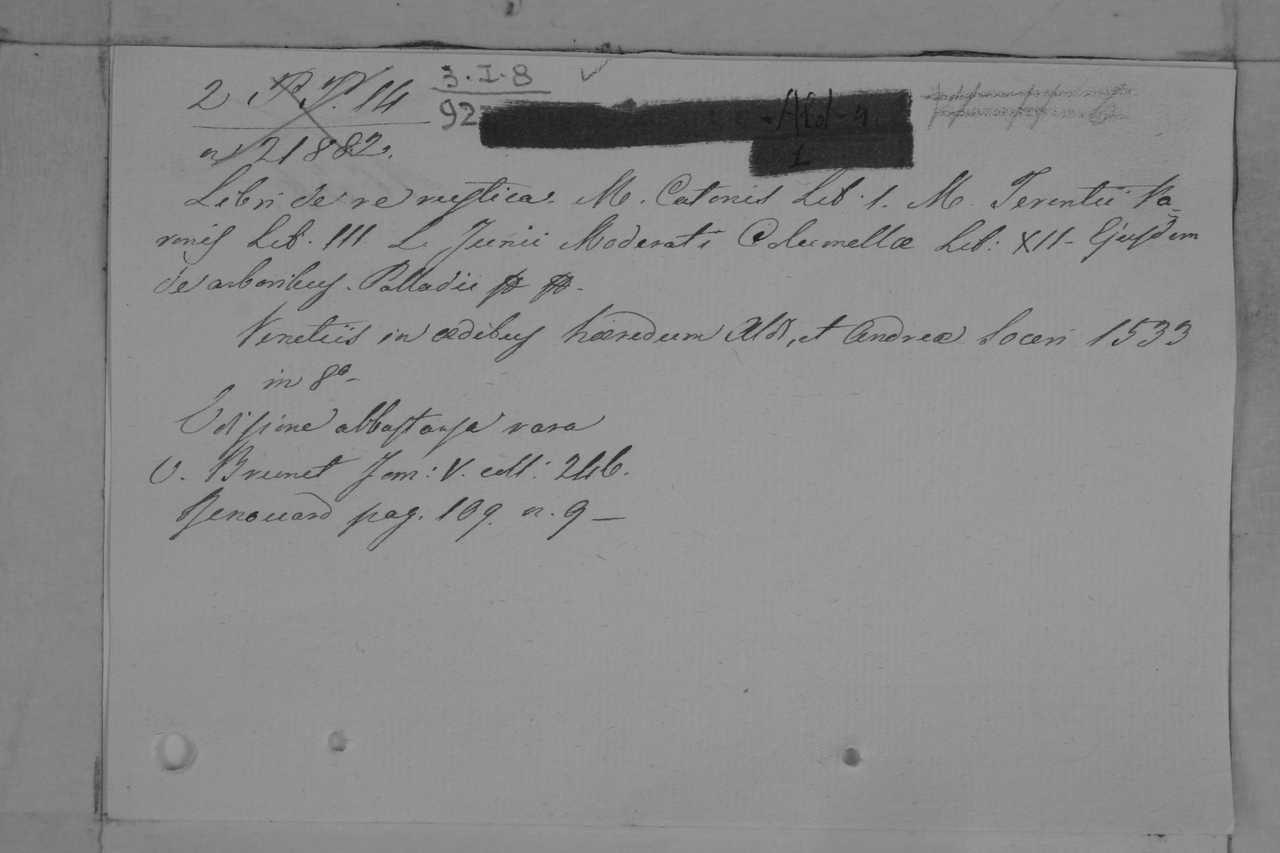 2 P. P. 14 3.I.8
92 Ald-4.
1
n 21882.
Libri de re rustica. M. Catonis Lib. 1. M. Terentii Va-
ronis Lib. III L. Junii Moderati Columellæ Lib: XII - Ejusdem
de arboribus. Palladii
Venetiis in ædibus hæredum Aldi, et Andreæ Soceri 1533
in 8º -
Edizione abbastanza rara
V. Brunet Tom: V. coll: 246.
Renouard pag. 109. n. 9 —